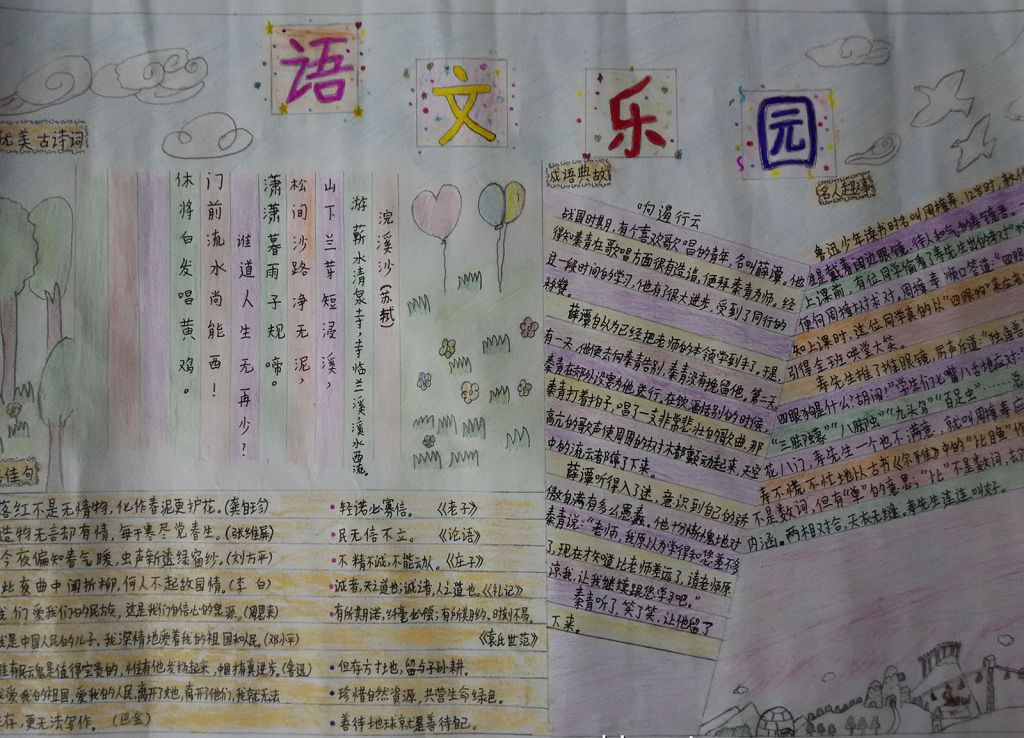 语文乐园
优美古诗词
浣溪沙(苏轼)
游蕲水清泉寺,寺临兰溪,溪水西流。
山下兰芽短浸溪,
松间沙路净无泥,
潇潇暮雨子规啼。
谁道人生无再少?
门前流水尚能西!
休将白发唱黄鸡。
佳句
落红不是无情物,化作春泥更护花。(龚自珍)
造物无言却有情,每于寒尽觉春生。(张维屏)
今夜偏知春气暖,虫声新透绿窗纱。(刘方平)
此夜曲中闻折柳,何人不起故园情。(李白)
我们爱我们的民族,这是我们自信心的泉源。(周恩来)
我是中国人民的儿子,我深情地爱着我的祖国和人民。(邓小平)
唯有民云鬼是值得宝贵的,惟有他发扬起来,中国才有真进步。(鲁迅)
我爱我的祖国,爱我的人民,离开了她,离开了他们,我就无法
生存,更无法写作。(巴金)
•轻诺必寡信。《老子》
•民无信不立。《论语》
•不精不诚,不能动人。《庄子》
•诚者,天之道也;诚之者,人之道也。《礼记》
•有所期诺,纤毫必偿;有所期约,时刻不易。
《袁氏世范》
•但存方寸地,留与子孙耕。
•珍惜自然资源,共营生命绿色。
•善待地球就是善待自己。
成语典故
响遏行云
战国时期,有个喜欢歌唱的青年,名叫薛潭。他
得知秦青在歌唱方面很有造诣,便拜秦青为师。经
过一段时间的学习,他有了很大进步,受到了同行的
称赞。
薛潭自认为已经把老师的本领学到手了。于是,
有一天,他便去向秦青告别,秦青没有挽留他。第二天,
秦青在郊外设宴为他送行。在饮酒话别的时候,
秦青打着拍子,唱了一支非常悲壮的歌曲,那
高亢的歌声使周围的树木都颤动起来,天空
中的流云都停了下来。
薛潭听得入了迷,意识到自己的骄
傲自满有多么愚蠢。他十分惭愧地对
秦青说:“老师,我原以为学得和您差不多
了,现在才知道比老师差远了,请老师原
谅我,让我继续跟您学习吧。”
秦青听了,笑了笑,让他留了
下来。
名人趣事
鲁迅少年读书时名叫周樟寿,12岁时,
是戴着闭边眼镜,待人和气的
上课前,有位同学偷看了寿先生出的对
便向周樟寿求对,周樟寿顺口答道:“四眼
知上课时,这位同学真的以“四眼狗”来应
引得全班哄堂大笑。
寿先生推了推眼镜,厉声后道:“独角兽
四眼狗是什么?胡闹!”学生们七嘴八舌地应对
“三脚蟾”“八脚蚀”“九头鸟”“百足虫”……总
花八门,寿先生一个也不满意,就叫周樟寿应
寿不慌不忙地以古书《尔雅》中的“比目鱼”作
不是数词,但有“单”的意思;“比”不是数词,
内涵。两相对合,天衣无缝,寿先生连连叫好。
Show